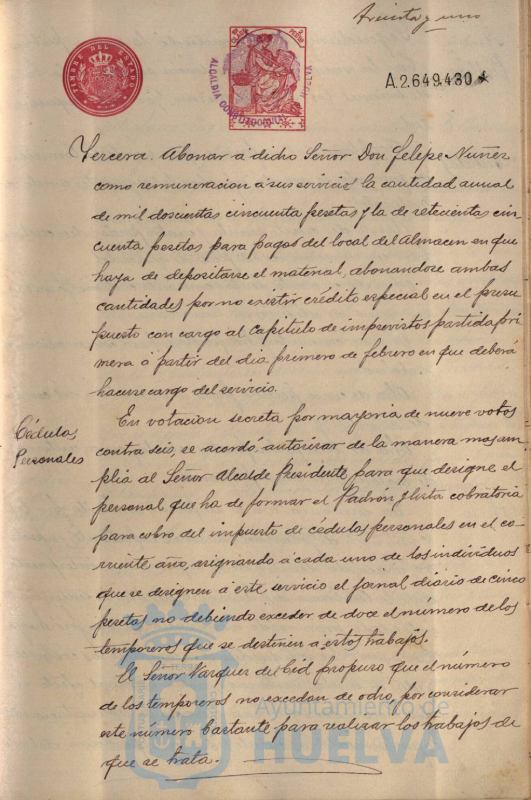 treinta y uno
TIMBRE DEL ESTADO
ALCALDIA CONSTITUCIONAL
HUELVA
A.2.649.430
Tercera. Abonar á dicho Señor Don Felipe Nuñez
como remuneracion á sus servicio la cantidad anual
de mil doscientas cincuenta pesetas y la de setecientas cin
cuenta pesetas para pagos del local del Almacen en que
haya de depositarse el material, abonandose ambas
cantidades por no existir crédito especial en el presu
puesto con cargo al Capitulo de imprevistos partida pri
mera á partir del dia primero de febrero en que deberá
hacerse cargo del servicio.
Cédulas
Personales
En votacion secreta por mayoria de nueve votos
contra seis, se acordó, autorizar de la manera mas am
plia al Señor Alcalde Presidente para que designe el
personal que ha de formar el Padrón y lista cobratoria
para cobro del impuesto de cédulas personales en el co
rriente año, asignando á cada uno de los individuos
que se designen á este servicio el jornal diario de cinco
pesetas no debiendo exceder de doce el número de los
temporeros que se destinen á estos trabajos.
El Señor Vazquez del Cid propuso que el número
de los temporeros no excedan de ocho, por considerar
este número bastante para realizar los trabajos de
que se trata.
Ayuntamiento de
HUELVA